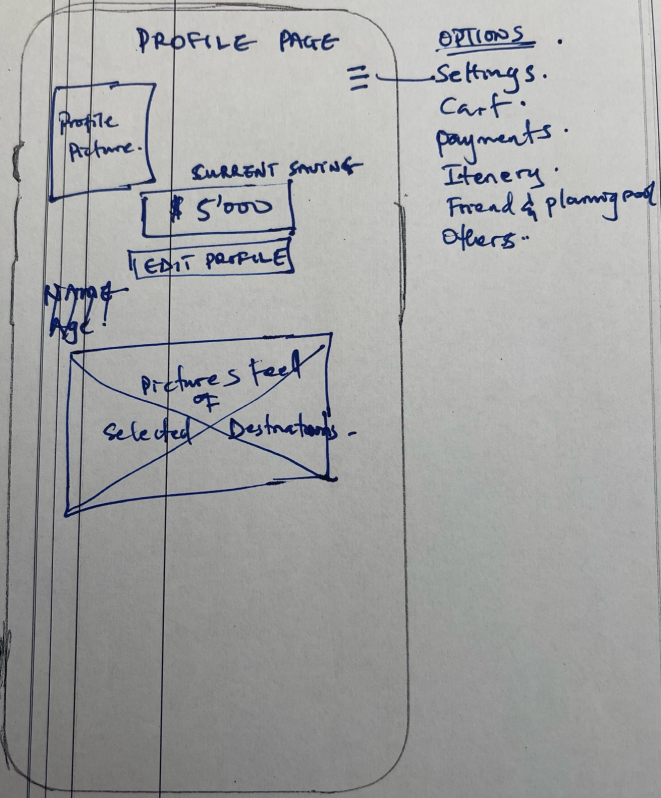 PROFILE PAGE
Profile
Picture.
CURRENT SAVING
$ 5'000
EDIT PROFILE
NAME
Age:
Pictures Feed
OF
Selected Destinations.
OPTIONS.
Settings.
Cart.
payments.
Itenery.
Friend & planning pool
Others..